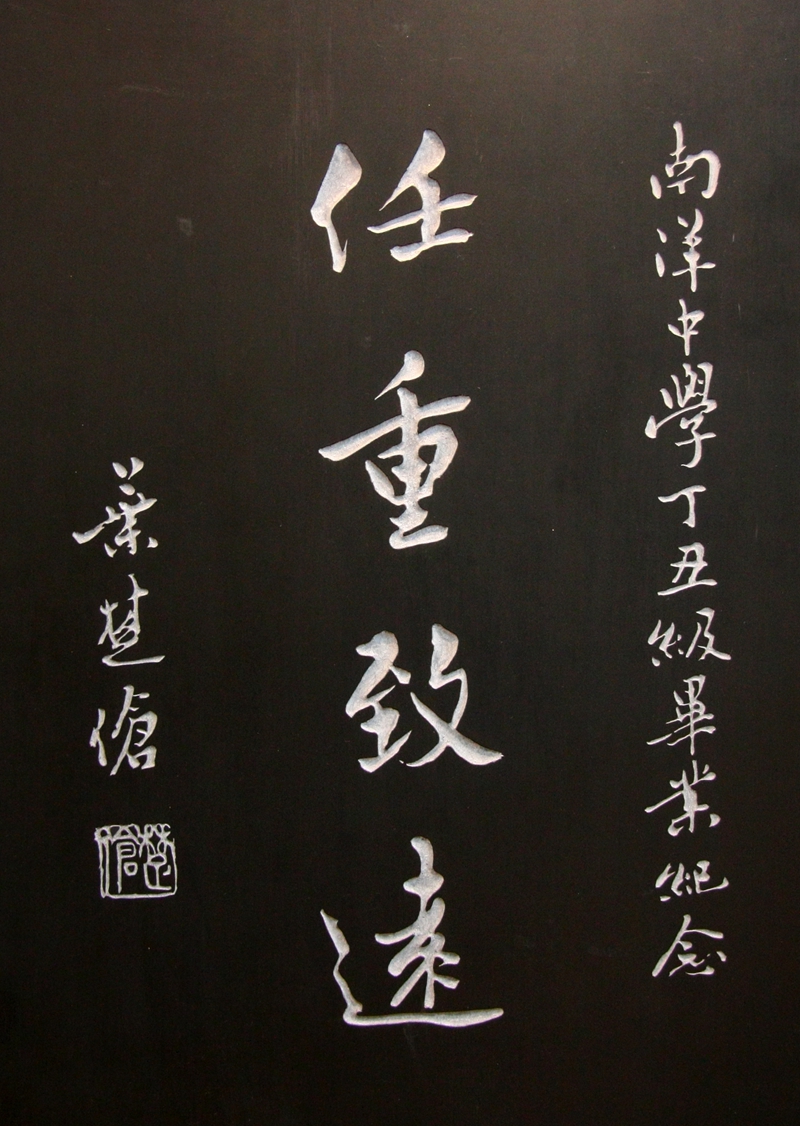 南洋中學丁丑級畢業紀念
任重致遠
葉楚傖
楚傖